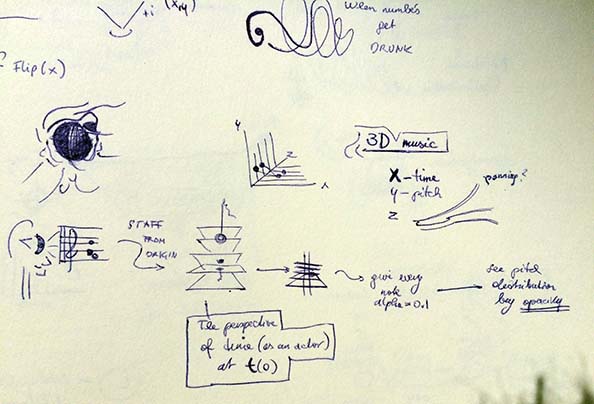 +i (x,y)
When numbers
get
DRUNK
Flip(x)
Y
Z
X
3D music
X-time
y-pitch
Z
panning?
STAFF
FROM
ORIGIN
give every
note
alpha=0.1
see pitch
distribution
by opacity
The perspective
of time (as an actor)
at t(0)